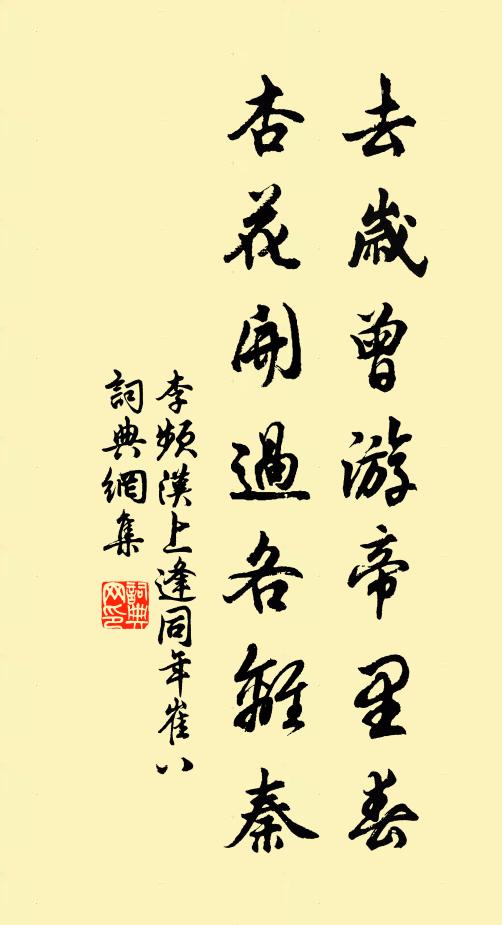 去歲曾游帝里春
杏花開過各離秦
李頻漢上逢同年崔八
詞典網集
詞典網印